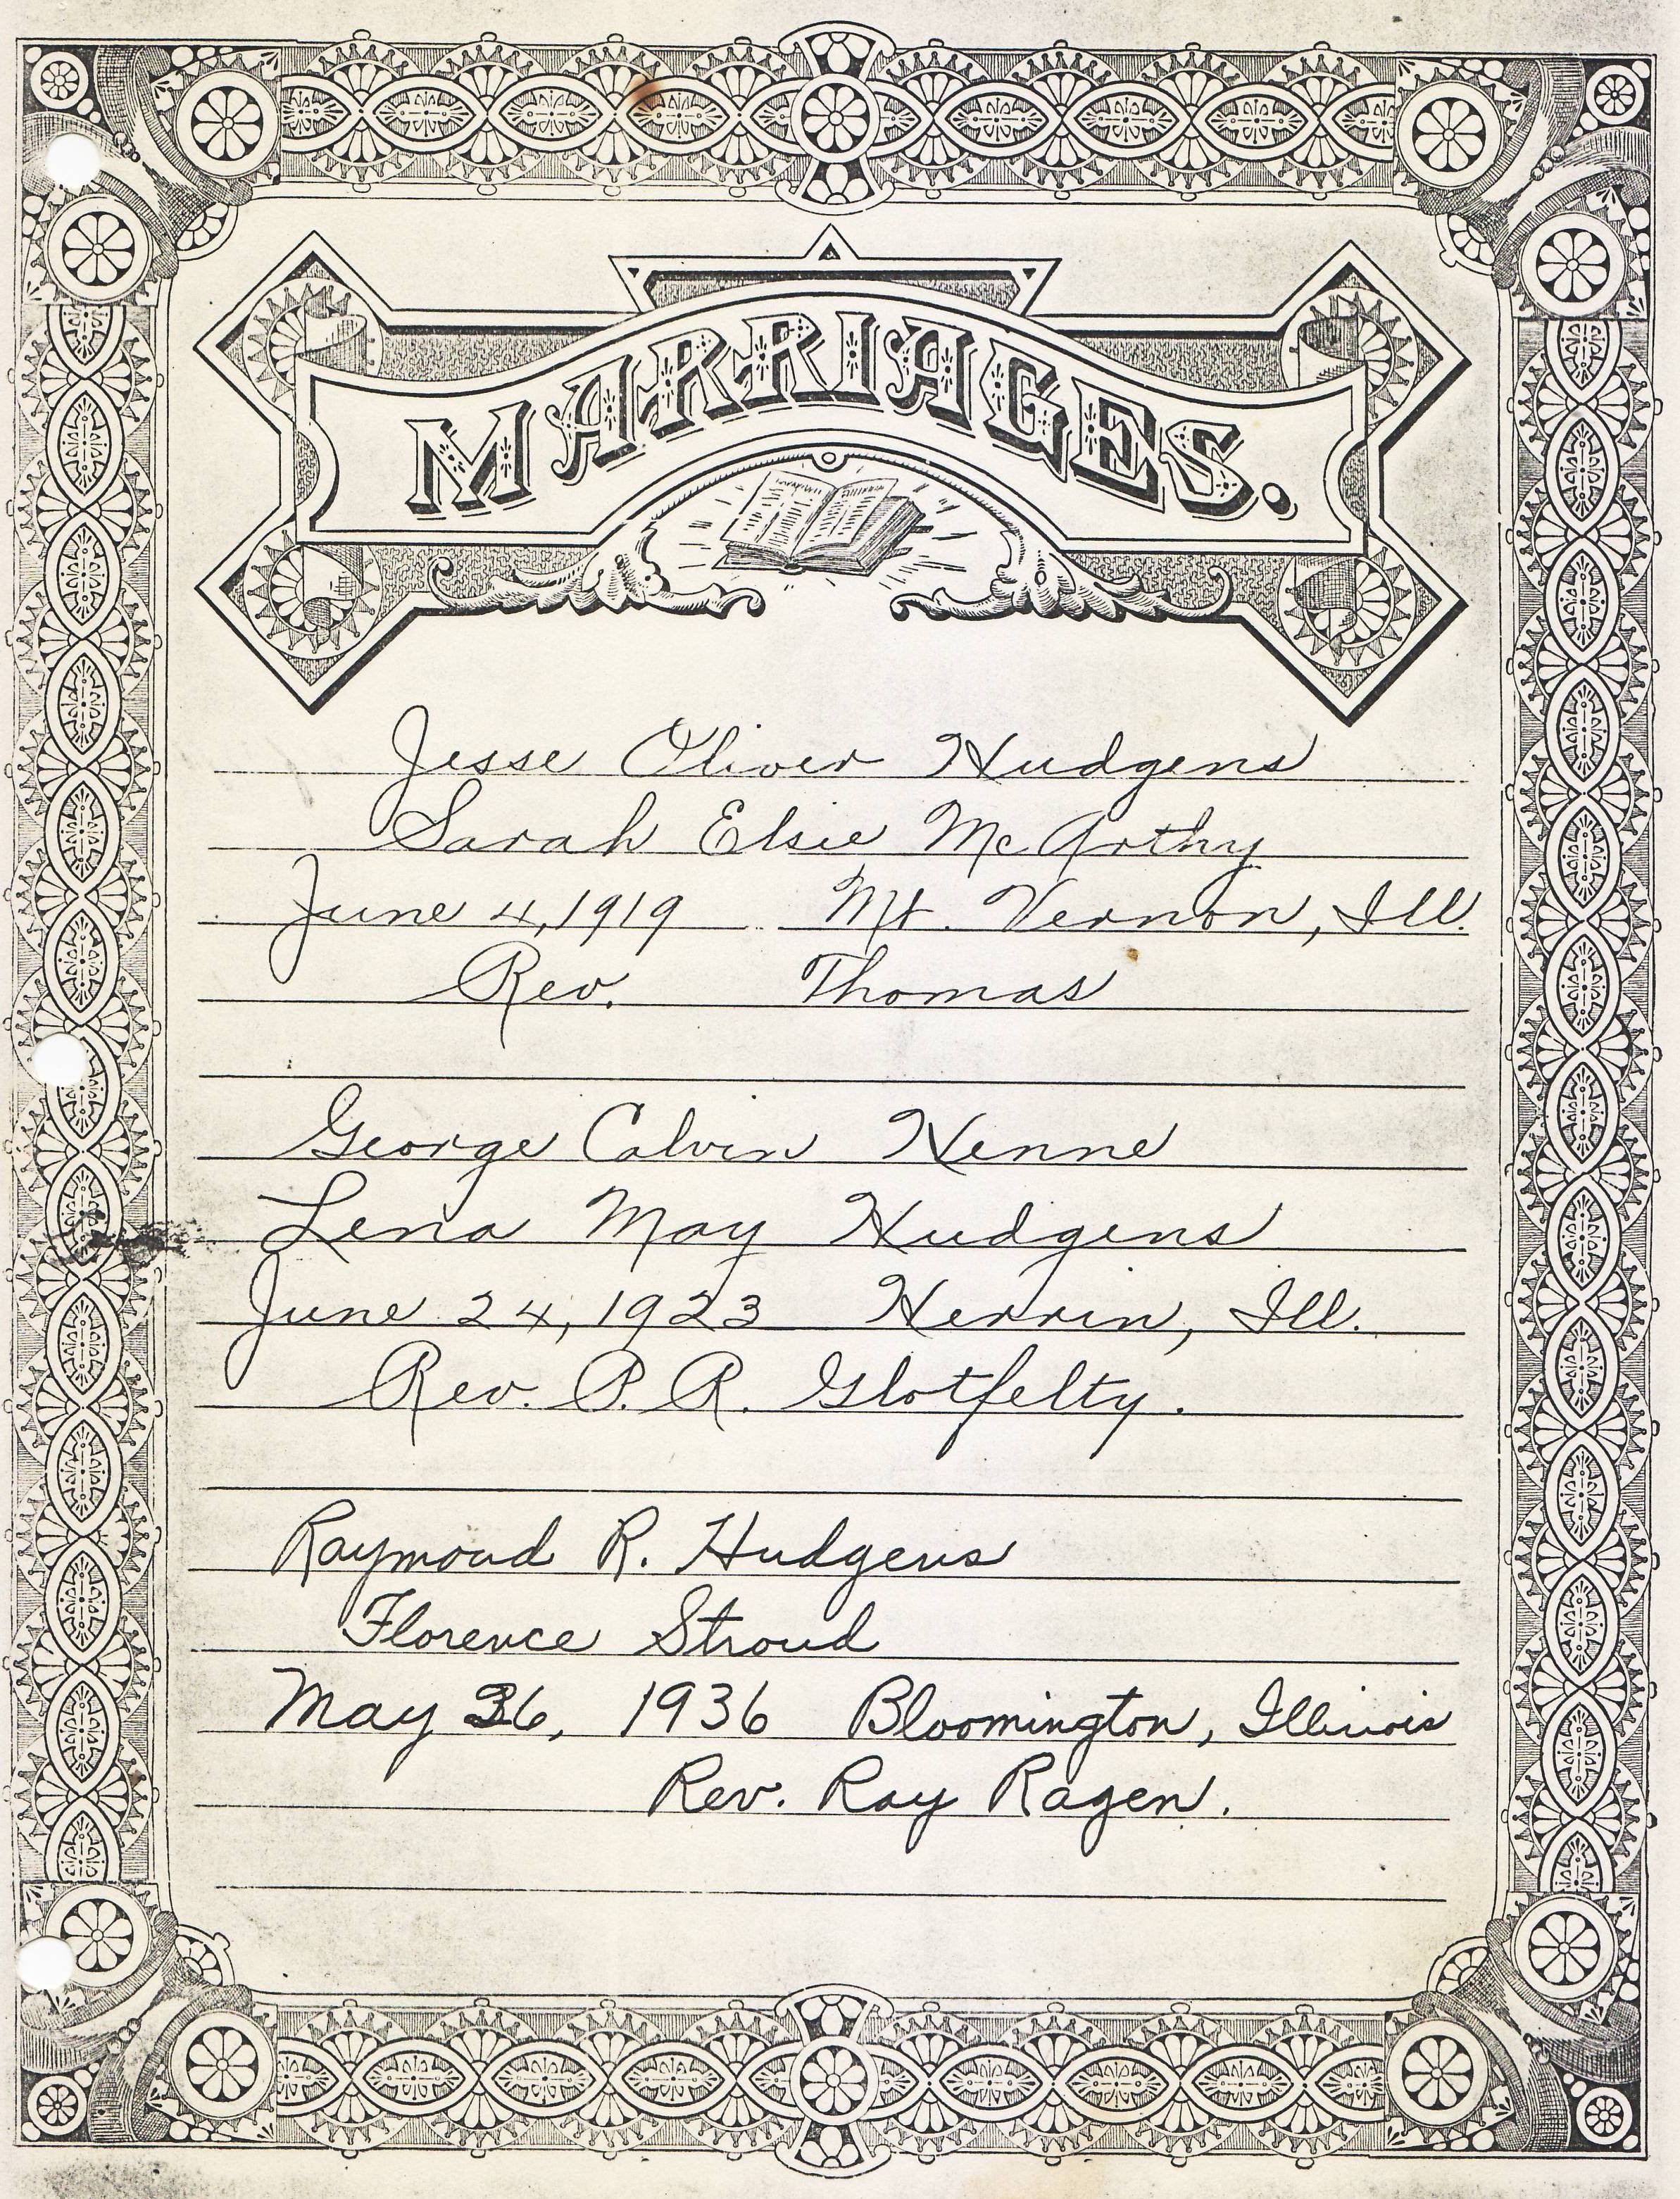 MARRIAGES.
Jesse Oliver Hudgens
Sarah Elsie McArthy
June 4, 1919 Mt. Vernon, Ill.
Rev. Thomas
George Calvin Henne
Lena May Hudgens
June 24, 1923 Herrin, Ill.
Rev. P. R. Glotfelty.
Raymond R. Hudgens
Florence Stroud
May 26, 1936 Bloomington, Illinois
Rev. Ray Ragen.